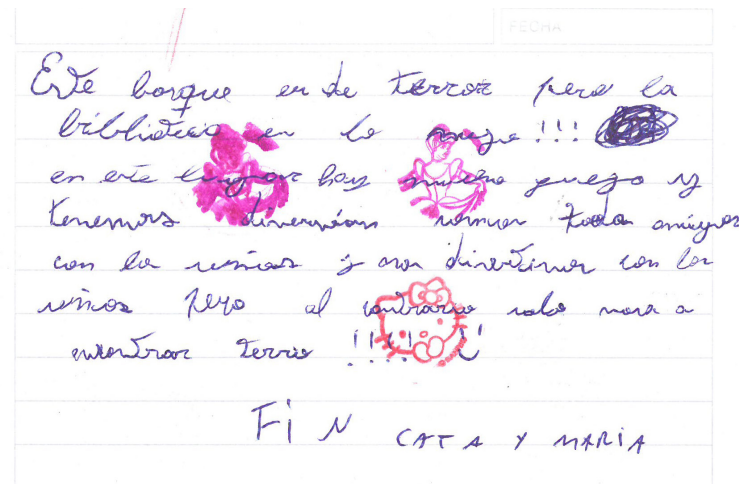 FECHA
Este bosque es de terror pero la
biblioteca es lo mejor !!!
en este lugar hay mucho juego y
tenemos diversión somos todo amigos
con la niñas y nos divertimos con los
niños pero al contrario solo vas a
encontrar terrio !!!!
FiN CATA Y MARiA